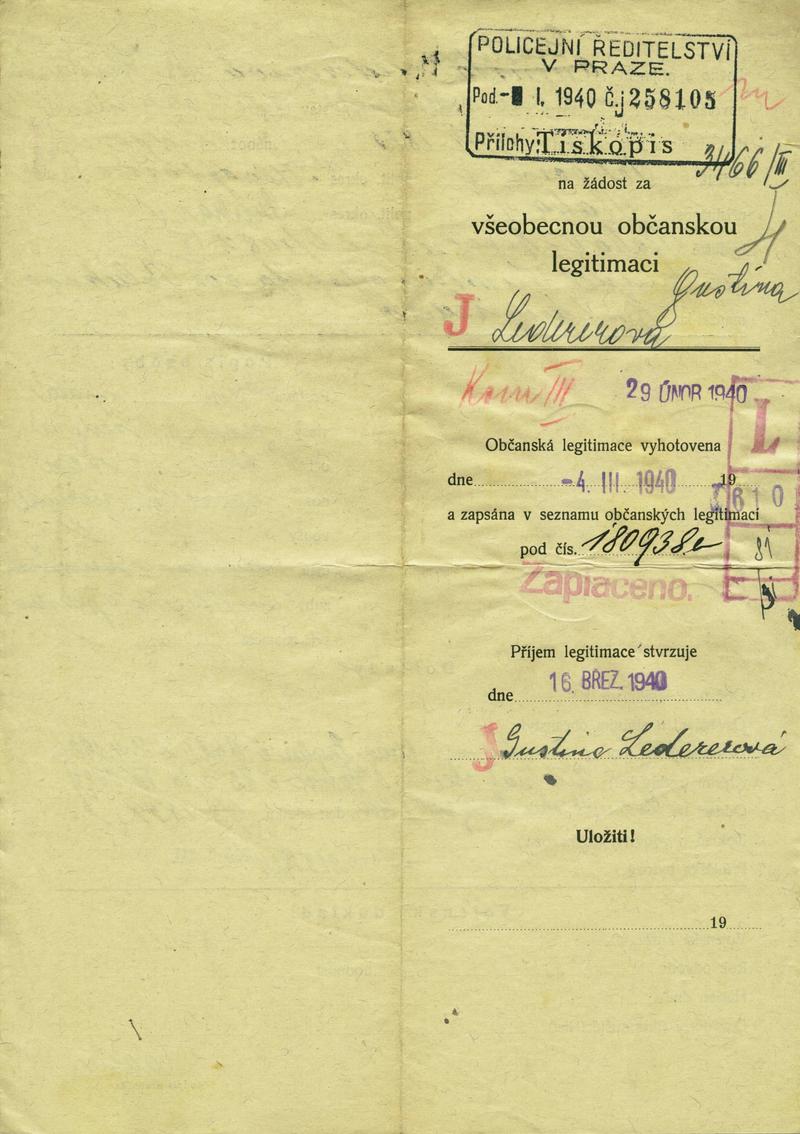 POLICEJNÍ ŘEDITELSTVÍ
V PRAZE.
Pod.- I. 1940 č.j 258105
Přílohy: Tiskopis
3466/III
na žádost za
všeobecnou občanskou
legitimaci
Gustina
J Ledererová
III 29 ÚNOR 1940
L
Občanská legitimace vyhotovena
dne -4. III. 1940 19
610
a zapsána v seznamu občanských legitimací
pod čís. 180938
Zaplaceno.
Příjem legitimace stvrzuje
dne 16. BŘEZ. 1940
J Gustina Ledererová
Uložiti!
19